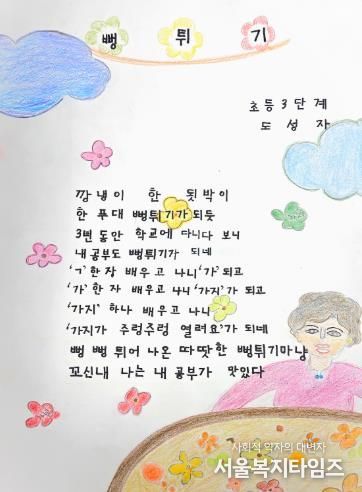 뻥 튀 기
초등3단계
도성자
깡냉이 한 됫박이
한 푸대 뻥튀기가 되듯
3변 동안 학교에 다니다 보니
내 공부도 뻥튀기가 되네
'ㄱ' 한 자 배우고 나니 '가' 되고
'가' 한 자 배우고 나니 '가지' 가 되고
'가지' 하나 배우고 나니
'가지가 주렁주렁 열려요' 가 되네
뻥 뻥 튀어 나온 따땃한 뻥튀기마냥
꼬신내 나는 내 공부가 맛있다
사회적 약자의 대변자
서울복지타임즈